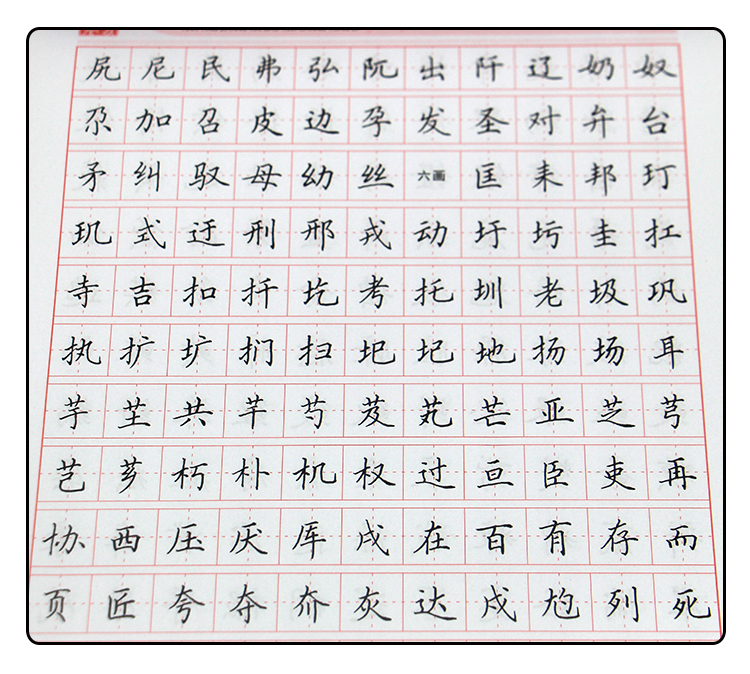 尻尼民弗弘阮出阡辽奶奴
尕加召皮边孕发圣对弁台
矛纠驭母幼丝六画匡耒邦玎
玑式迂刑邢戎动圩圬圭扛
寺吉扣扦圪考托圳老圾巩
执扩圹扪扫圯圮地扬场耳
芋芏共芊芍芨芄芒亚芝芎
芑芗朽朴机权过亘臣吏再
协西压厌厍戌在百有存而
页匠夸夺夼灰达戍尥列死